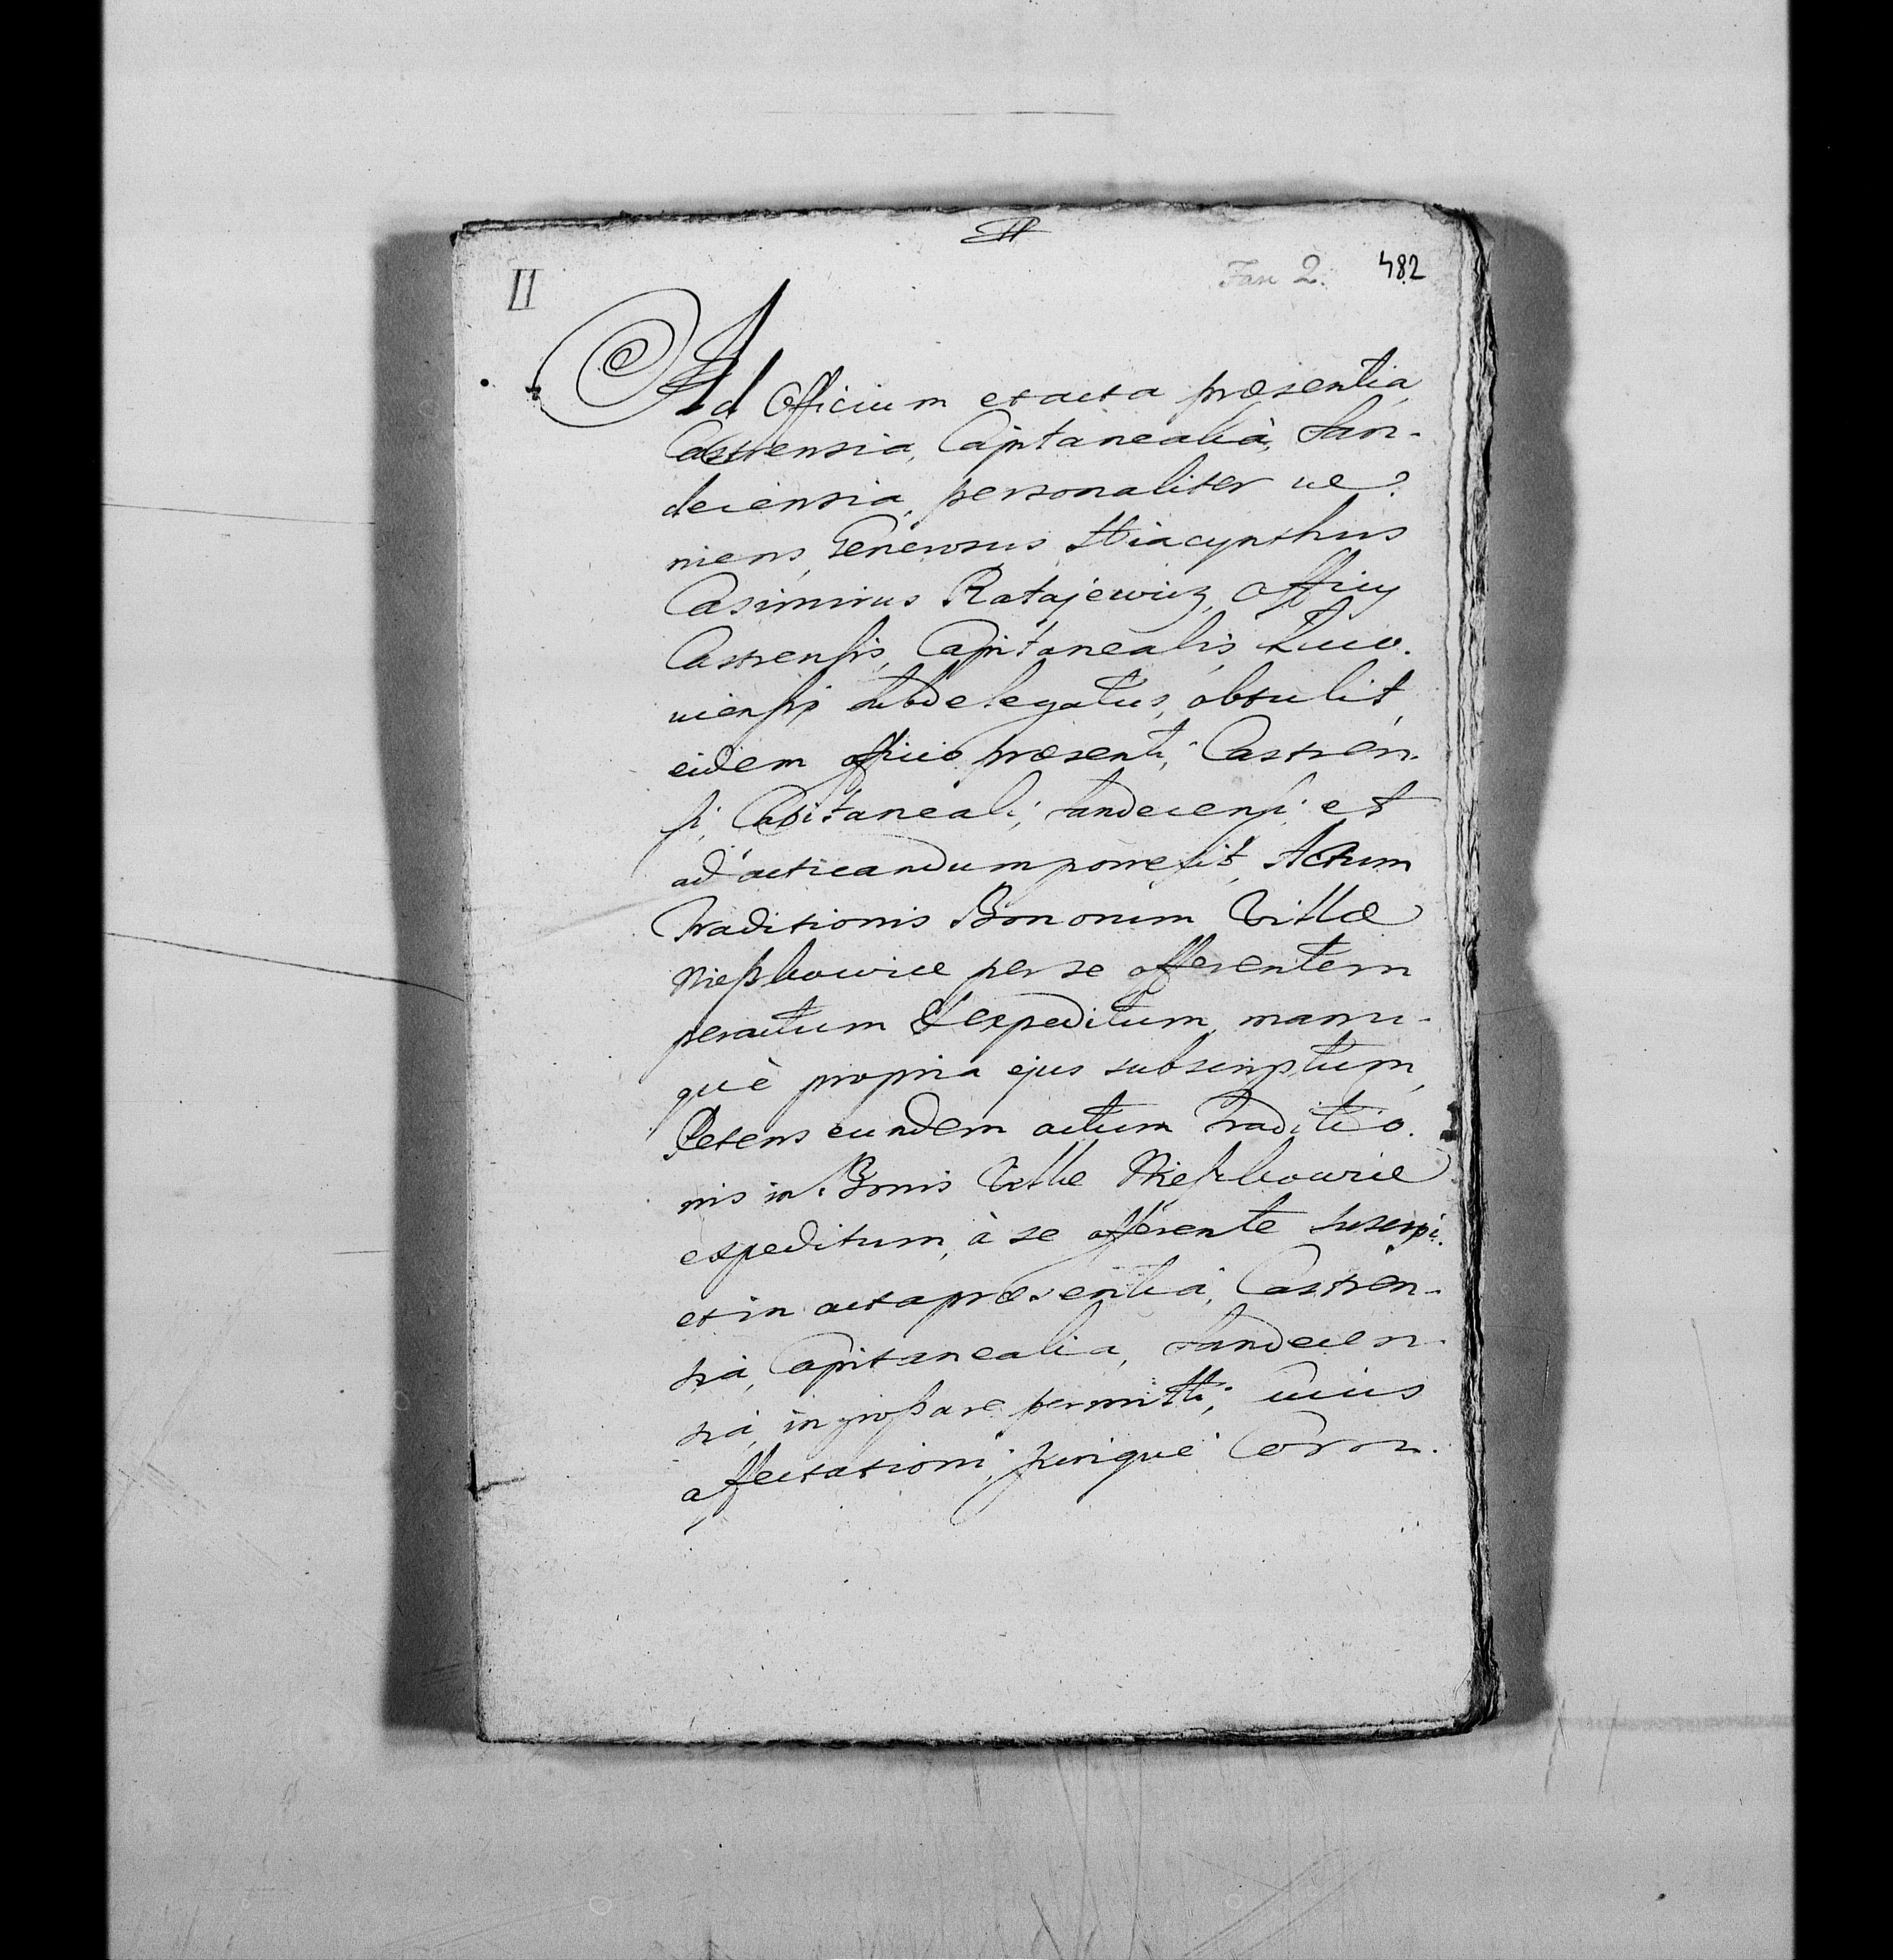 II
Fasc 2. 482
Ad Officium et acta præsentia,
Castrensia, Capitanealia, San-
decensia, personaliter ve-
niens, Generosus Hiacynthus
Casimirus Ratajewicz, Officij
Castrensis, Capitanealis,
viensis subdelegatus, obtulit,
eidem officio præsenti, Castren-
si, Capitaneali, Sandecensi et
ad acticandum porrexit, Actum
Traditionis Bonorum Villæ
per se offerentem
peractum & expeditum, manu-
què propria ejus subscriptum,
Petens eundem actum Traditio-
nis in Bonis Villæ
expeditum, à se offerente suscipi
et in acta præsentia, Castren-
sia, Capitanealia, Sandecen-
sia, ingrossare permitti; cuius
affectationi, jurique Conso-